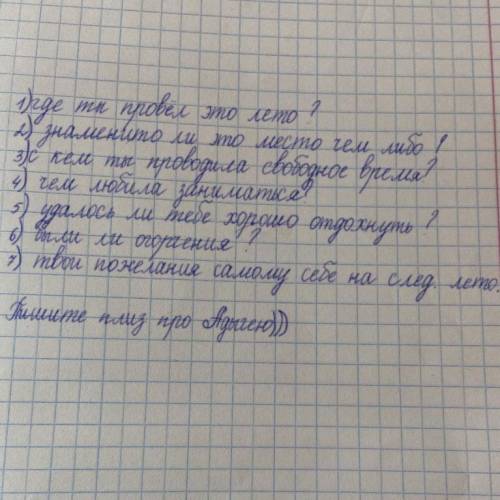 1) где ты провёл это лето?
2) знаменито ли это место чем либо?
3) с кем ты проводила свободное время?
4) чем любила заниматься?
5) удалось ли тебе хорошо отдохнуть?
6) были ли огорчения?
7) твои пожелания самому себе на след. лето.
Пишите плиз про Адыгею)))